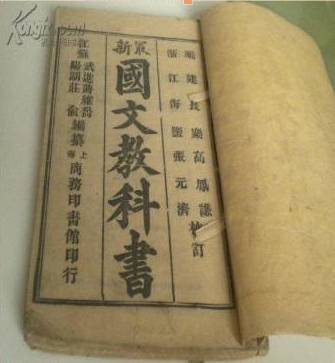 福建長樂高鳳謙
浙江海鹽張元濟
校訂
最新
國文教科書
江蘇
武進蔣維喬
陽湖莊俞
編纂
上海商務印書館印行